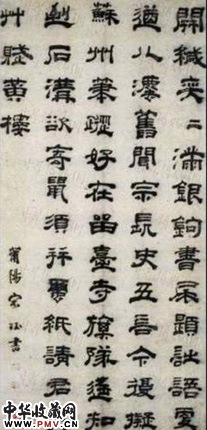 開緘奕〻滿銀鉤書尾題詩語更
遒八灋舊聞宗長史五言今復擬
蘇州筆蹤好在留臺寺旗隊遙知
到石溝欲寄鼠須并繭紙請君
艸賦黃樓
莆陽宋珏書
中华收藏网
WWW.PMV.CN